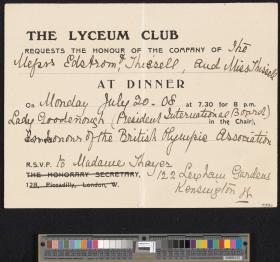 THE LYCEUM CLUB
REQUESTS THE HONOUR OF THE COMPANY OF The
Messrs Edstrom, Thiesell, and Miss Thiesell
AT DINNER
On Monday July 20. 08 at 7.30 for 8 p.m.
Lady Goodenough (President International Board)
(in the Chair),
honour of the British Olympic Association
R.S.V.P. to Madame Thayer
THE HONORARY SECRETARY, 122 Lexham Gardens
128, Piccadilly, London, W. Kensington W.